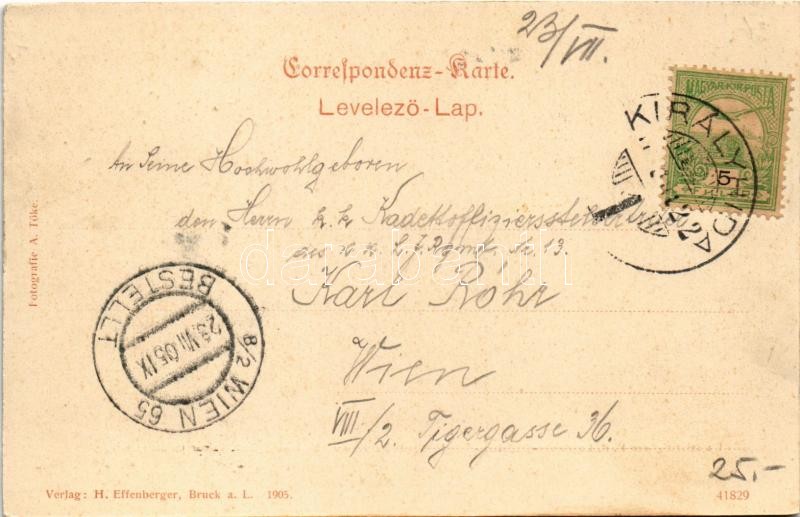 23/VII.
Correspondenz-Karte.
Levelező-Lap.
MAGYAR KIR. POSTA
5
KIRÁLYHIDA
An Seine Hochwohlgeboren
den Herrn k. k. Kadettoffiziersstellvertreter
des k. k. L. J. Rgmt. Nr. 13.
Karl Röhr
Wien
VIII/2. Tigergasse 36.
Fotografie A. Töke.
8/2 WIEN 65
23.VII.05.IX
BESTELLT
25.-
Verlag: H. Effenberger, Bruck a. L. 1905.
41829
darabanth